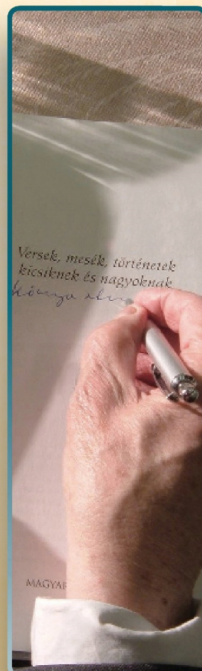 Versek, mesék, történetek
kicsiknek és nagyoknak
MAGYAR